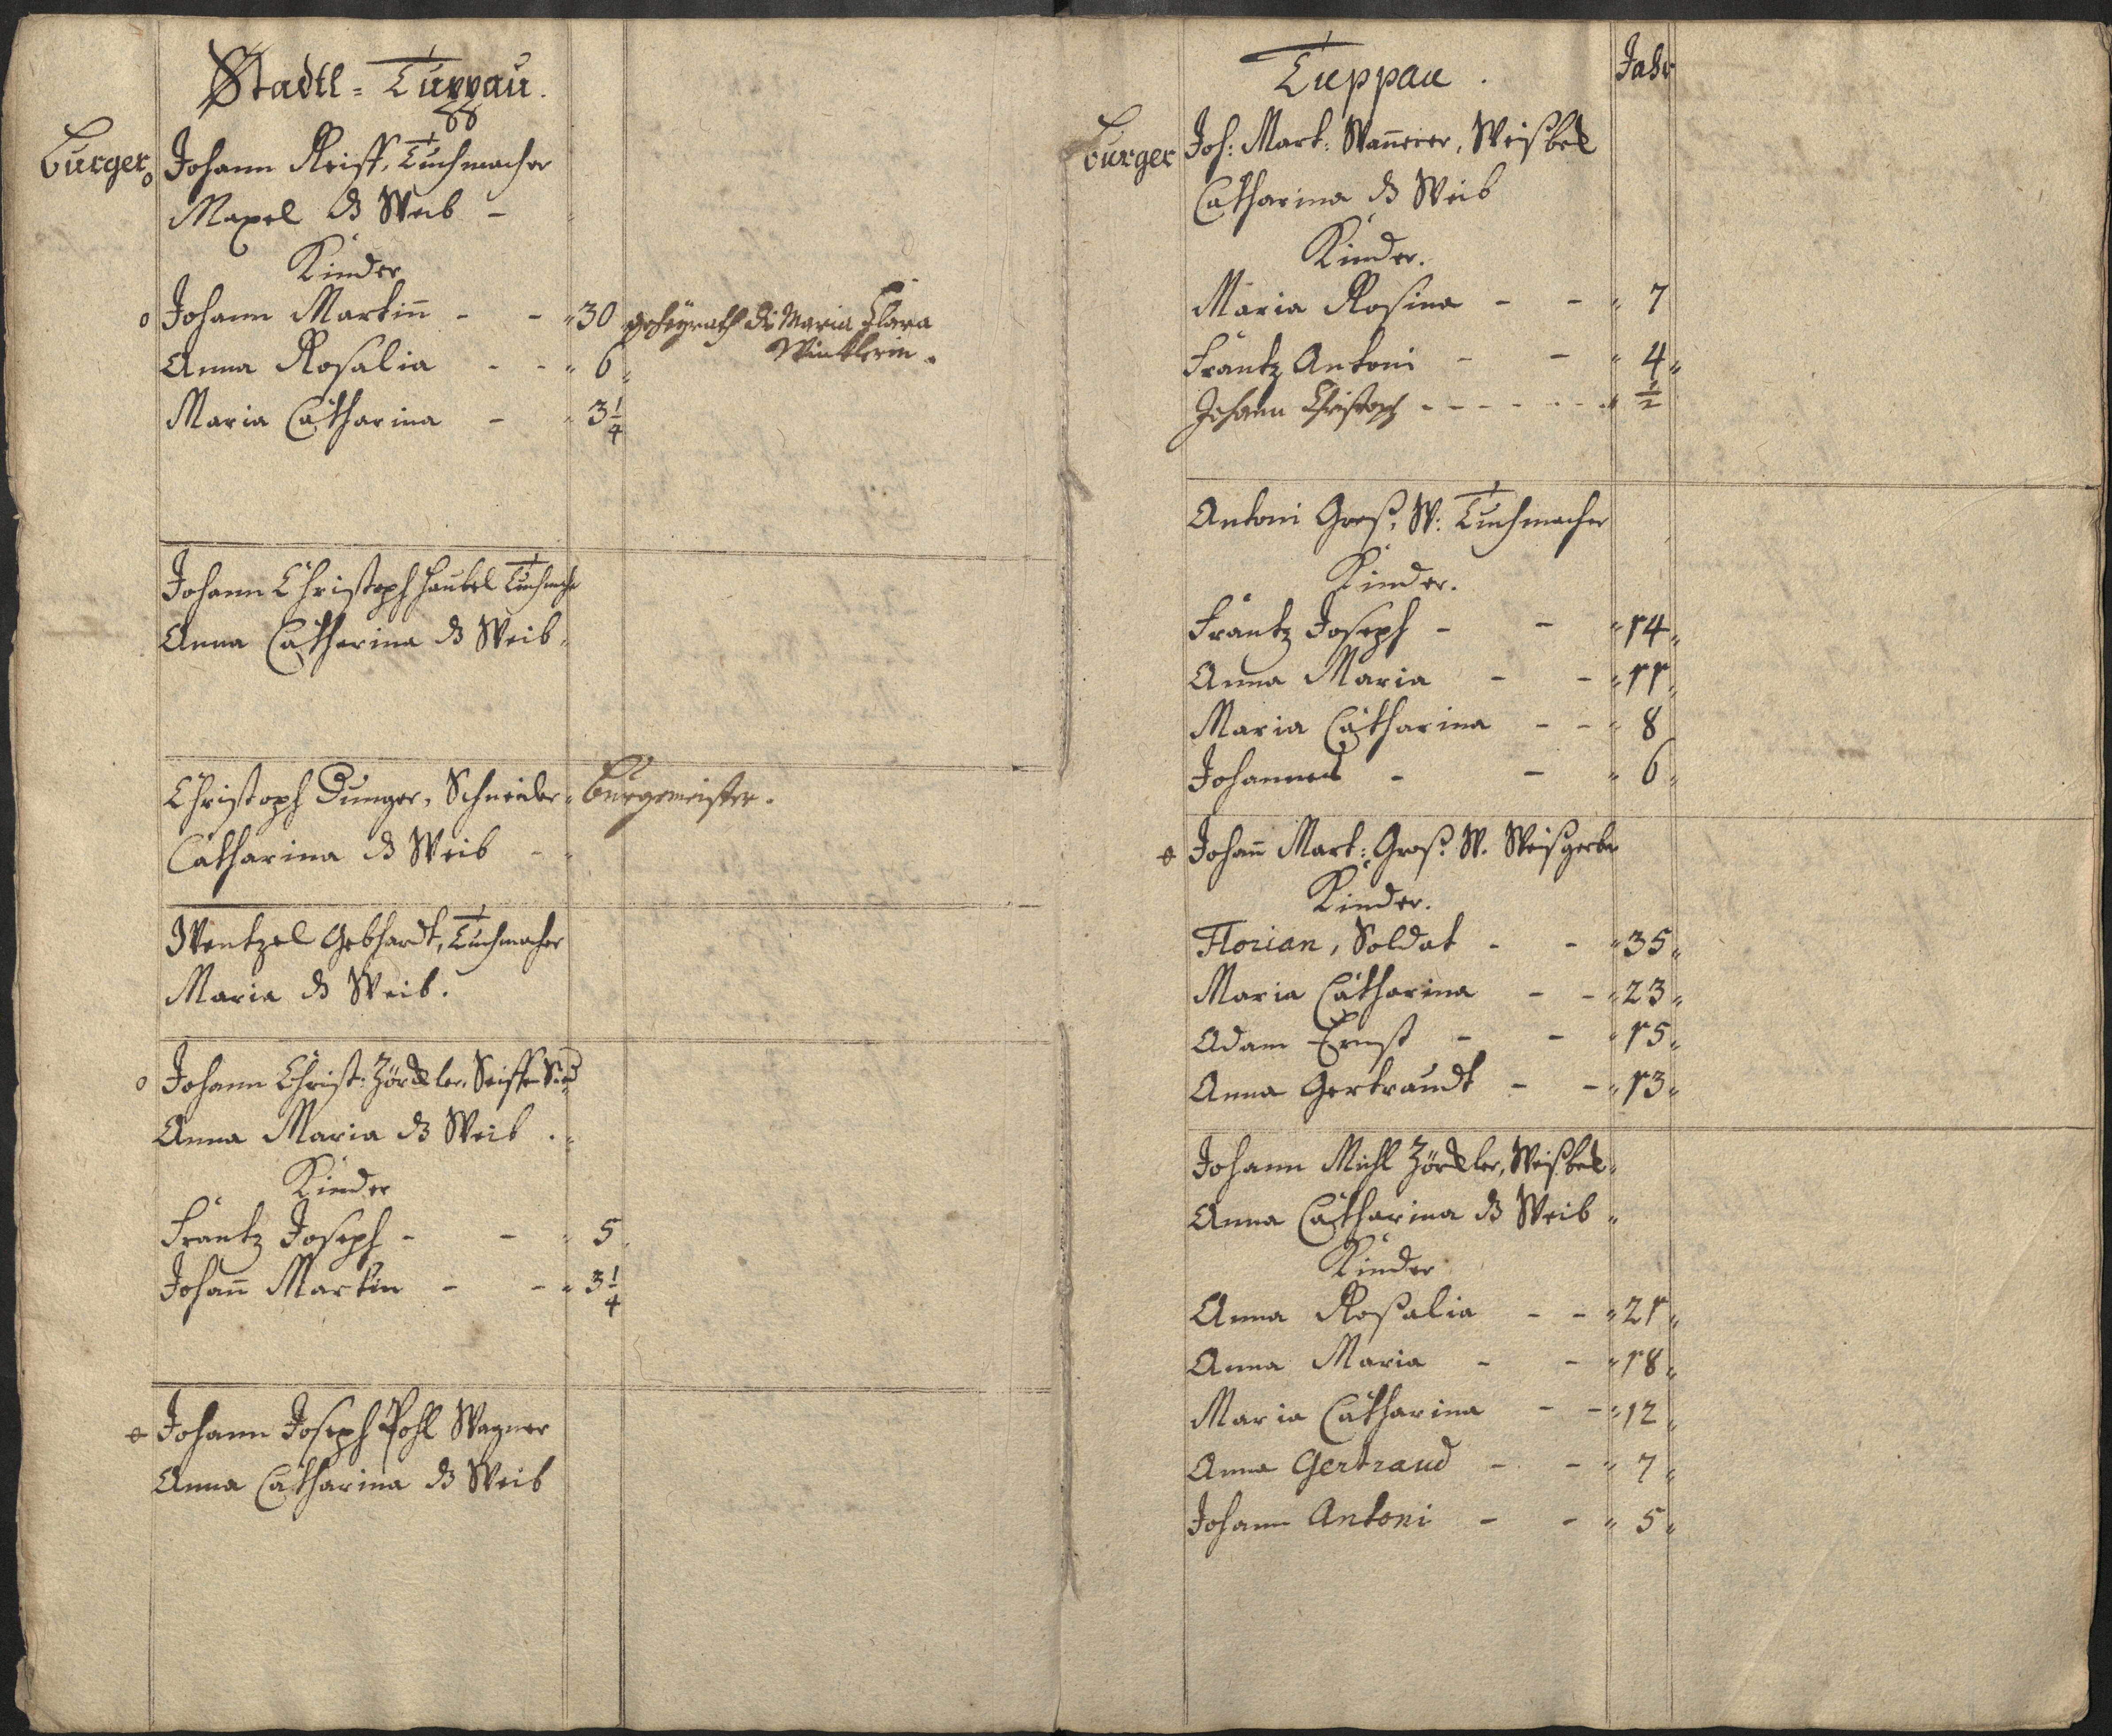 Stadtl = Tuppau.
Burger
Johann Reiss, Tuchmacher
Maxel ds Weib -
Kinder
o Johann Martin̄ - - " 30 geheyrath die Maria Clara
Wincklerin.
Anna Rosalia - - " 6 "
Maria Catharina - " 3 1/4
Johann Christoph Haubel Tuchmacher
Anna Catharina ds Weib "
Christoph Dunger, Schneider " burgermeister.
Catharina ds Weib - "
Wentzel Gebhardt, Tuchmacher
Maria ds Weib.
o Johann Christ: Zörckler, Seiffen Sied
Anna Maria ds Weib . "
Kinder
Frantz Joseph - - " 5 "
Johan̄ Martin - - " 3 1/4
Johann Joseph Pohl Wagner
Anna Catharina ds Weib
Tuppau . Jahr
burger
Joh: Mart: Wan̄erer, Weißbek
Catharina ds Weib
Kinder.
Maria Rosina - - " 7
Frantz Antoni - - " 4 "
Johann Christoph - - - - - - " 1/2
Antoni Groß, W: Tuchmacher
Kinder.
Frantz Joseph - - " 14 "
Anna Maria - - " 11 "
Maria Catharina - - " 8
Johannes - - " 6 "
Johan̄ Mart: Groß W. Weißgerber
Kinder.
Florian, Soldat - - " 35 "
Maria Catharina - - " 23 "
Adam Ernst - - " 15 "
Anna Gertraudt - - " 13 "
Johann Michl Zörckler, Weißbek "
Anna Catharina ds Weib "
Kinder
Anna Rosalia - - " 21 "
Anna Maria - - " 18 "
Maria Catharina - - " 12 "
Anna Gertraud - - " 7 "
Johann Antoni - - " 5 "